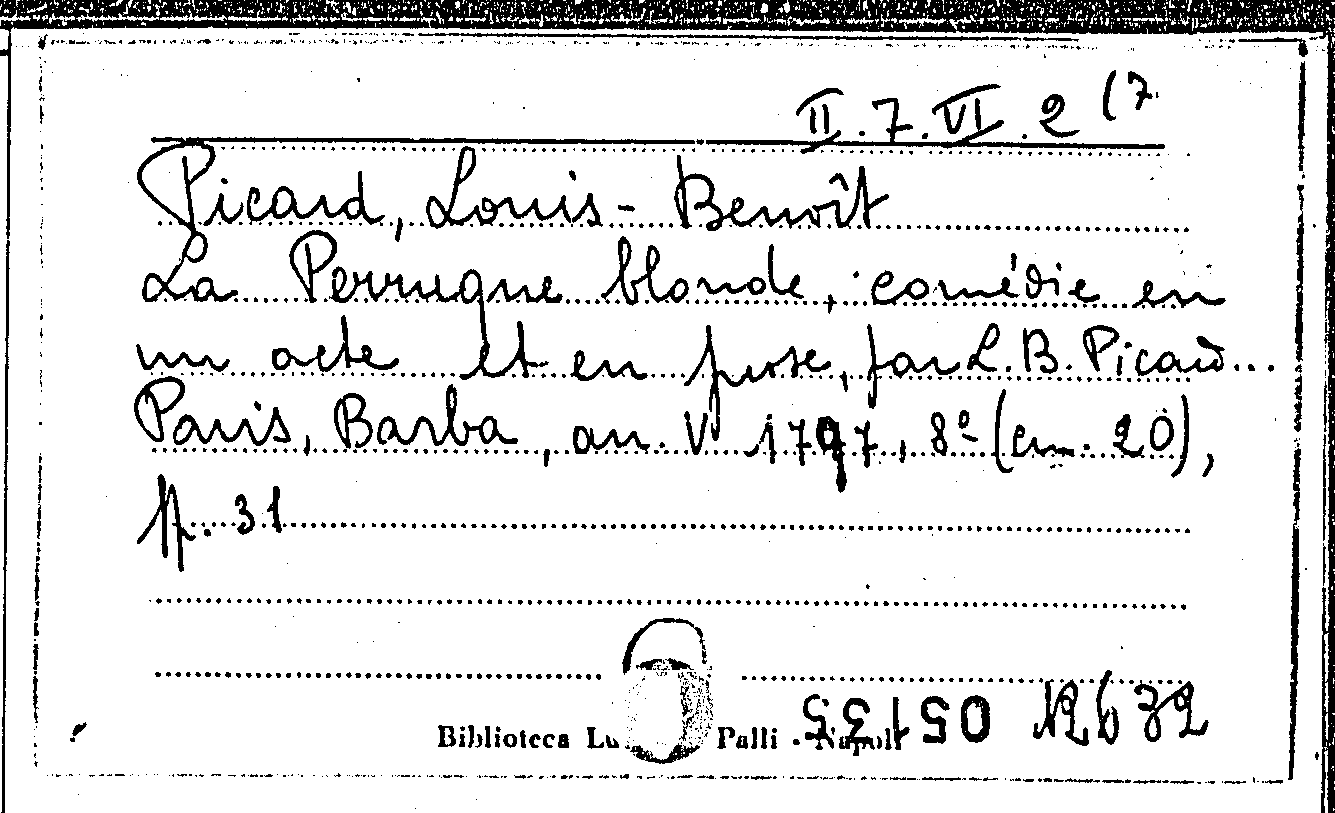 II.7.VI.2 (7
Picard, Louis-Benoît
La Perruque blonde, comédie en
un acte et en prose, par L. B. Picard...
Paris, Barba, an. V 1797, 8º (cm. 20),
pp. 31
Biblioteca Lu Palli - Napoli